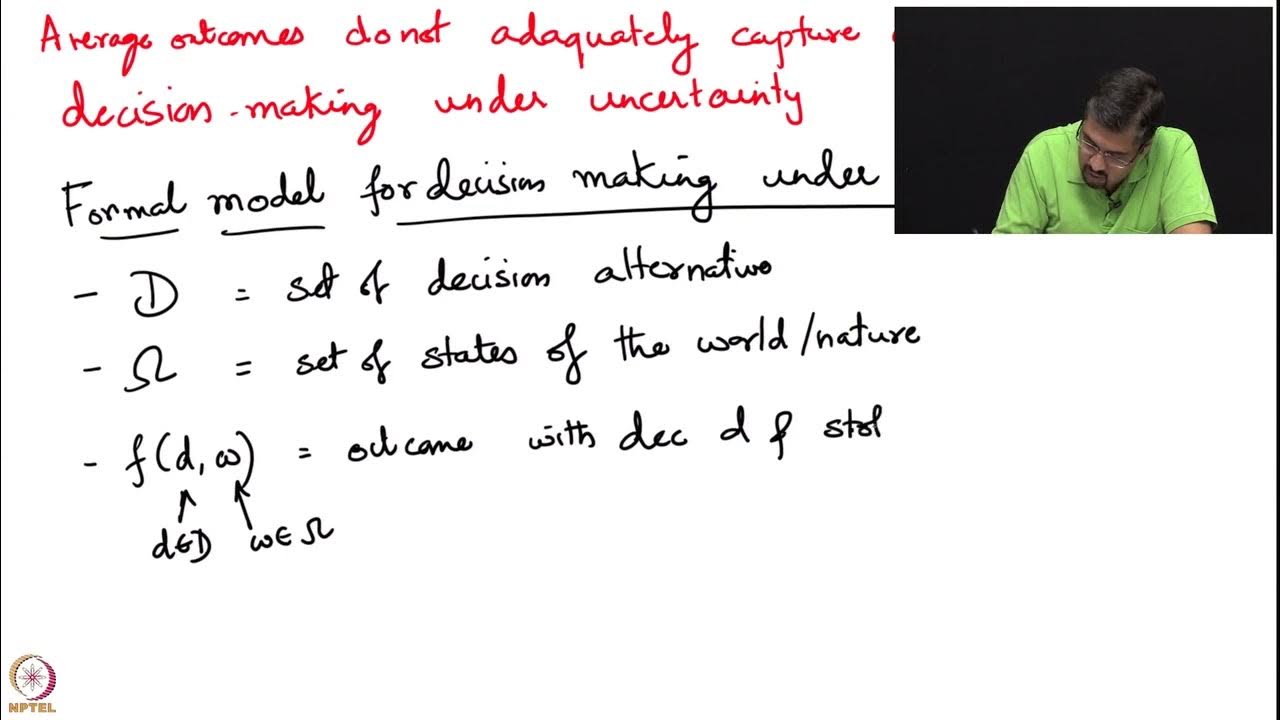 Average outcomes do not adaquately capture
decision-making under uncertainty
Formal model for decision making under
- D = set of decision alternative
- Ω = set of states of the world/nature
- f(d, ω) = outcome with dec d &
d∈D ω∈Ω
NPTEL